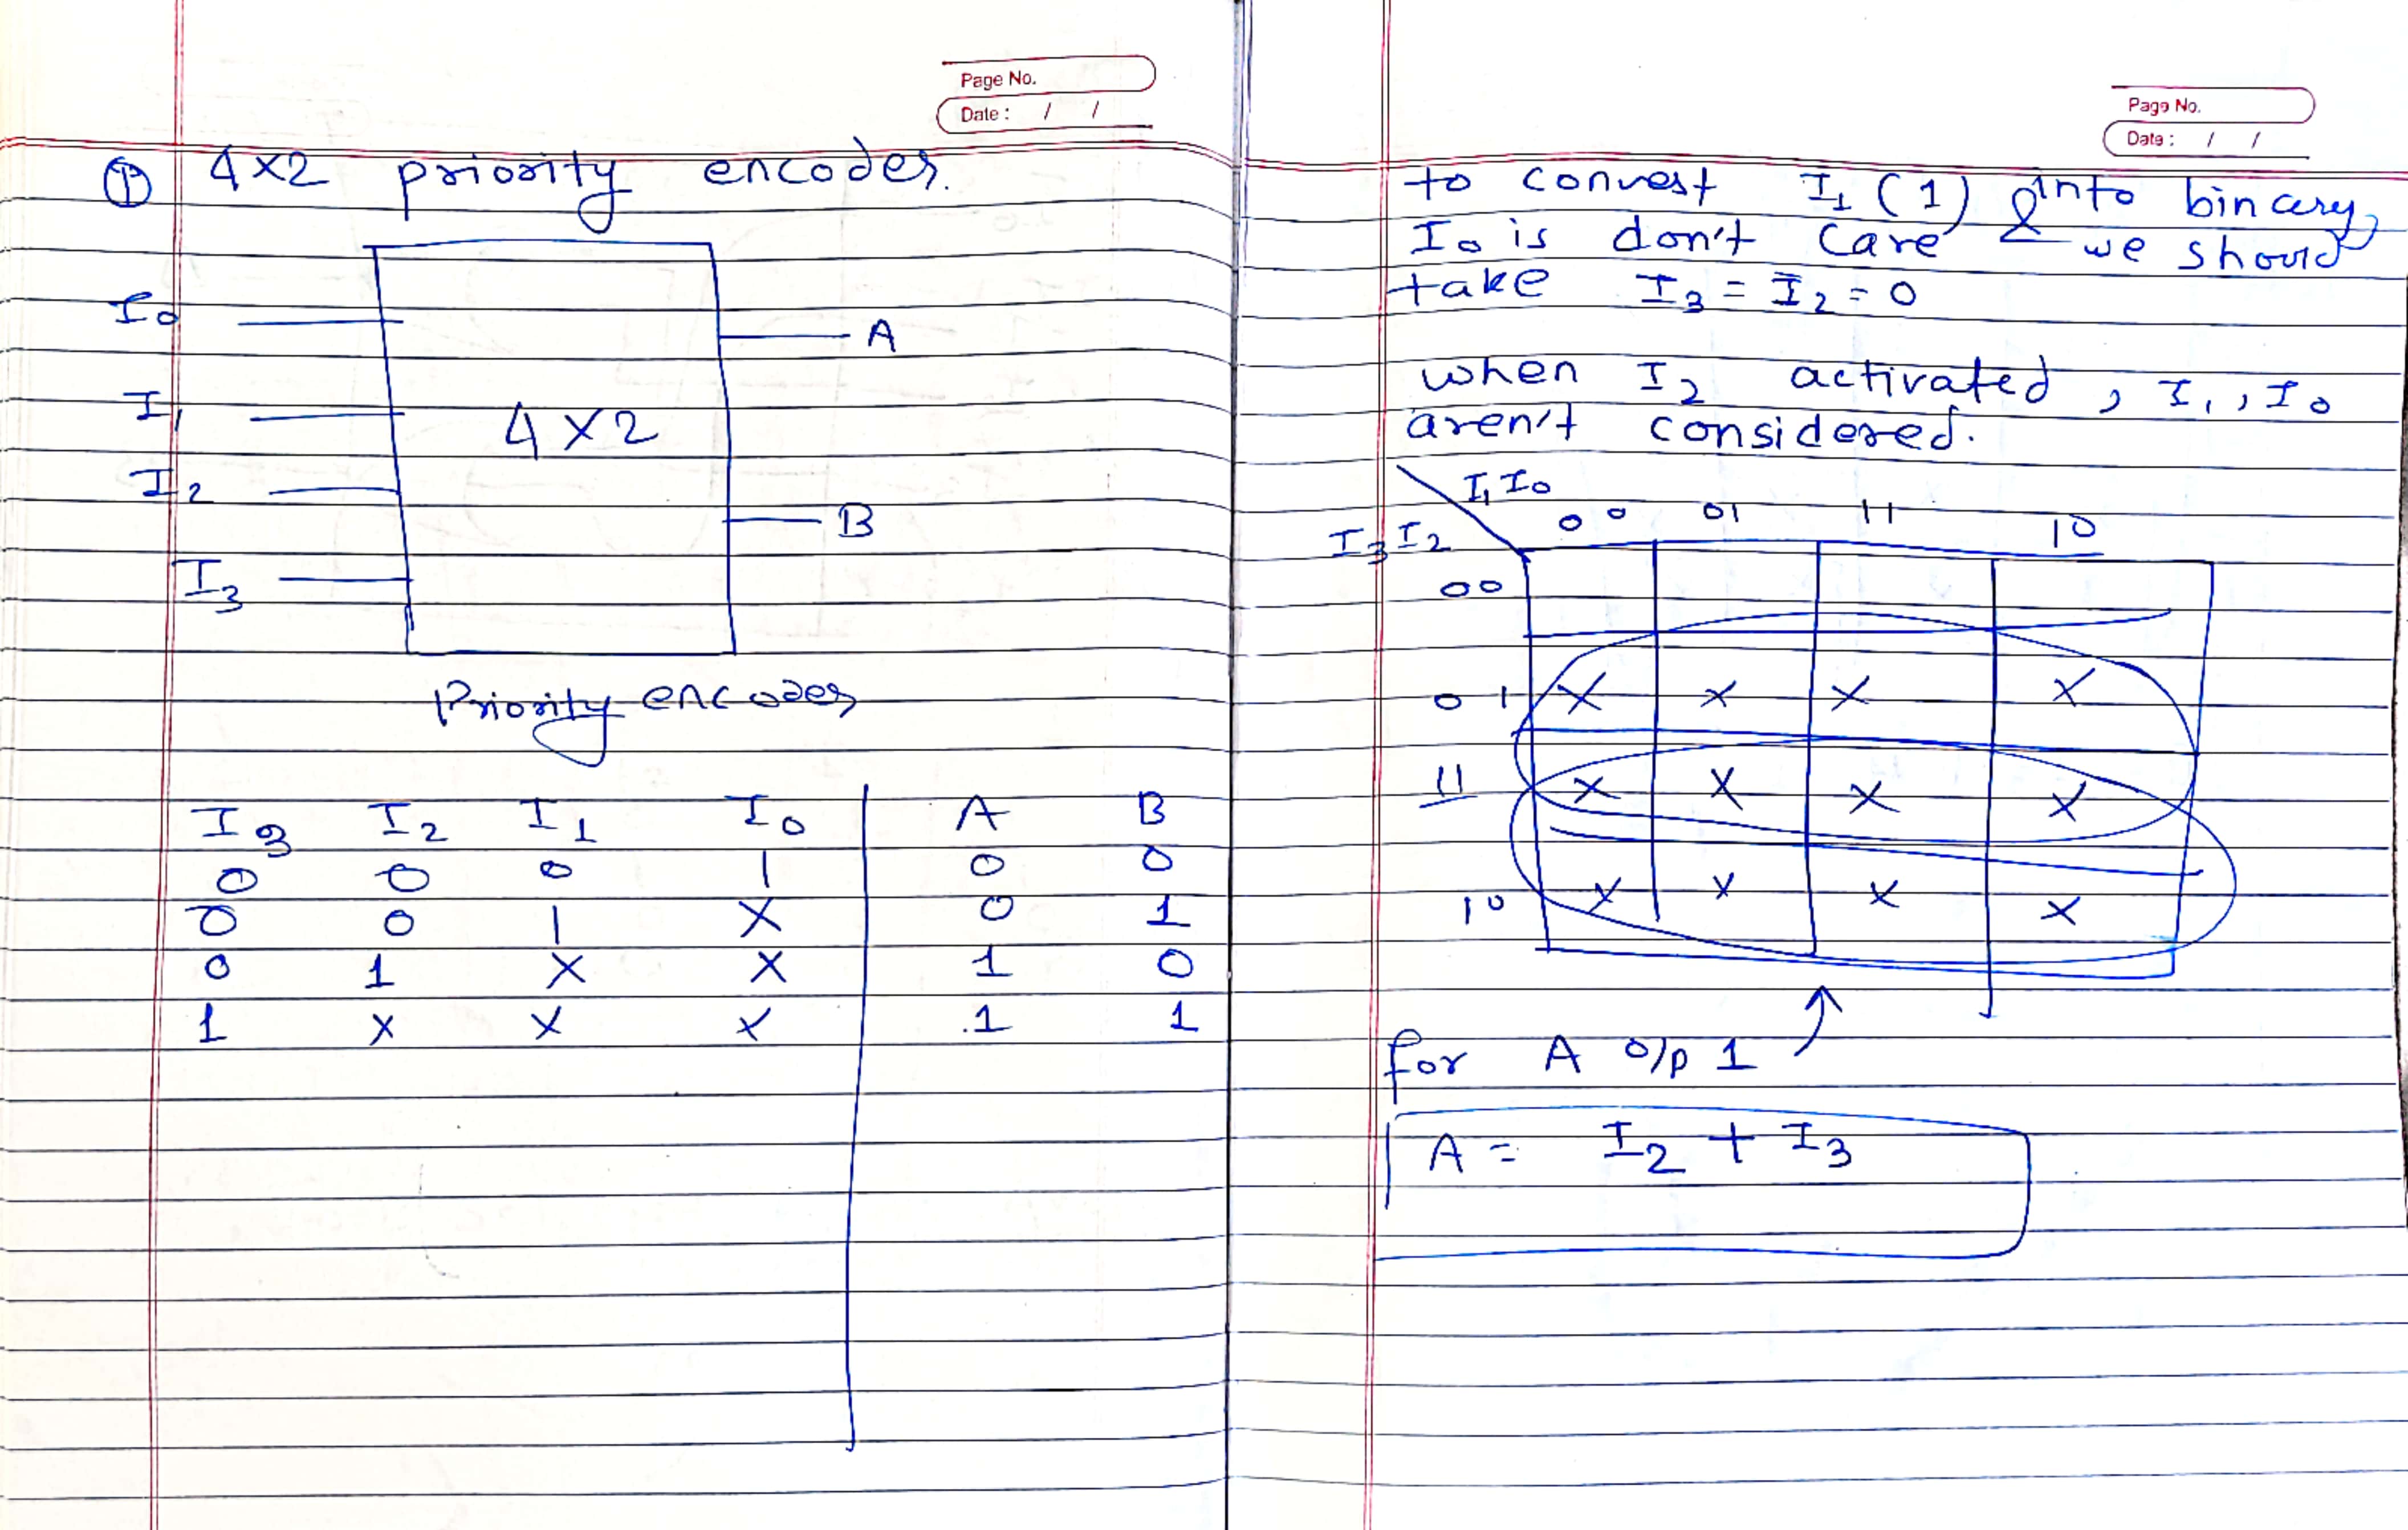 Page No.
Date : / /
① 4×2 priority encoder.
I0
A
I1
4×2
I2
B
I3
Priority encoder
I3 I2 I1 I0 A B
0 0 0 1 0 0
0 0 1 X 0 1
0 1 X X 1 0
1 X X X 1 1
Page No.
Date : / /
to convert I1 (1) into binary,
I0 is don't care & we should
take I3 = I2 = 0
when I2 activated , I1, I0
aren't considered.
I1 I0
I3 I2 00 01 11 10
00
01 X X X X
11 X X X X
10 X X X X
for A o/p 1
A = I2 + I3